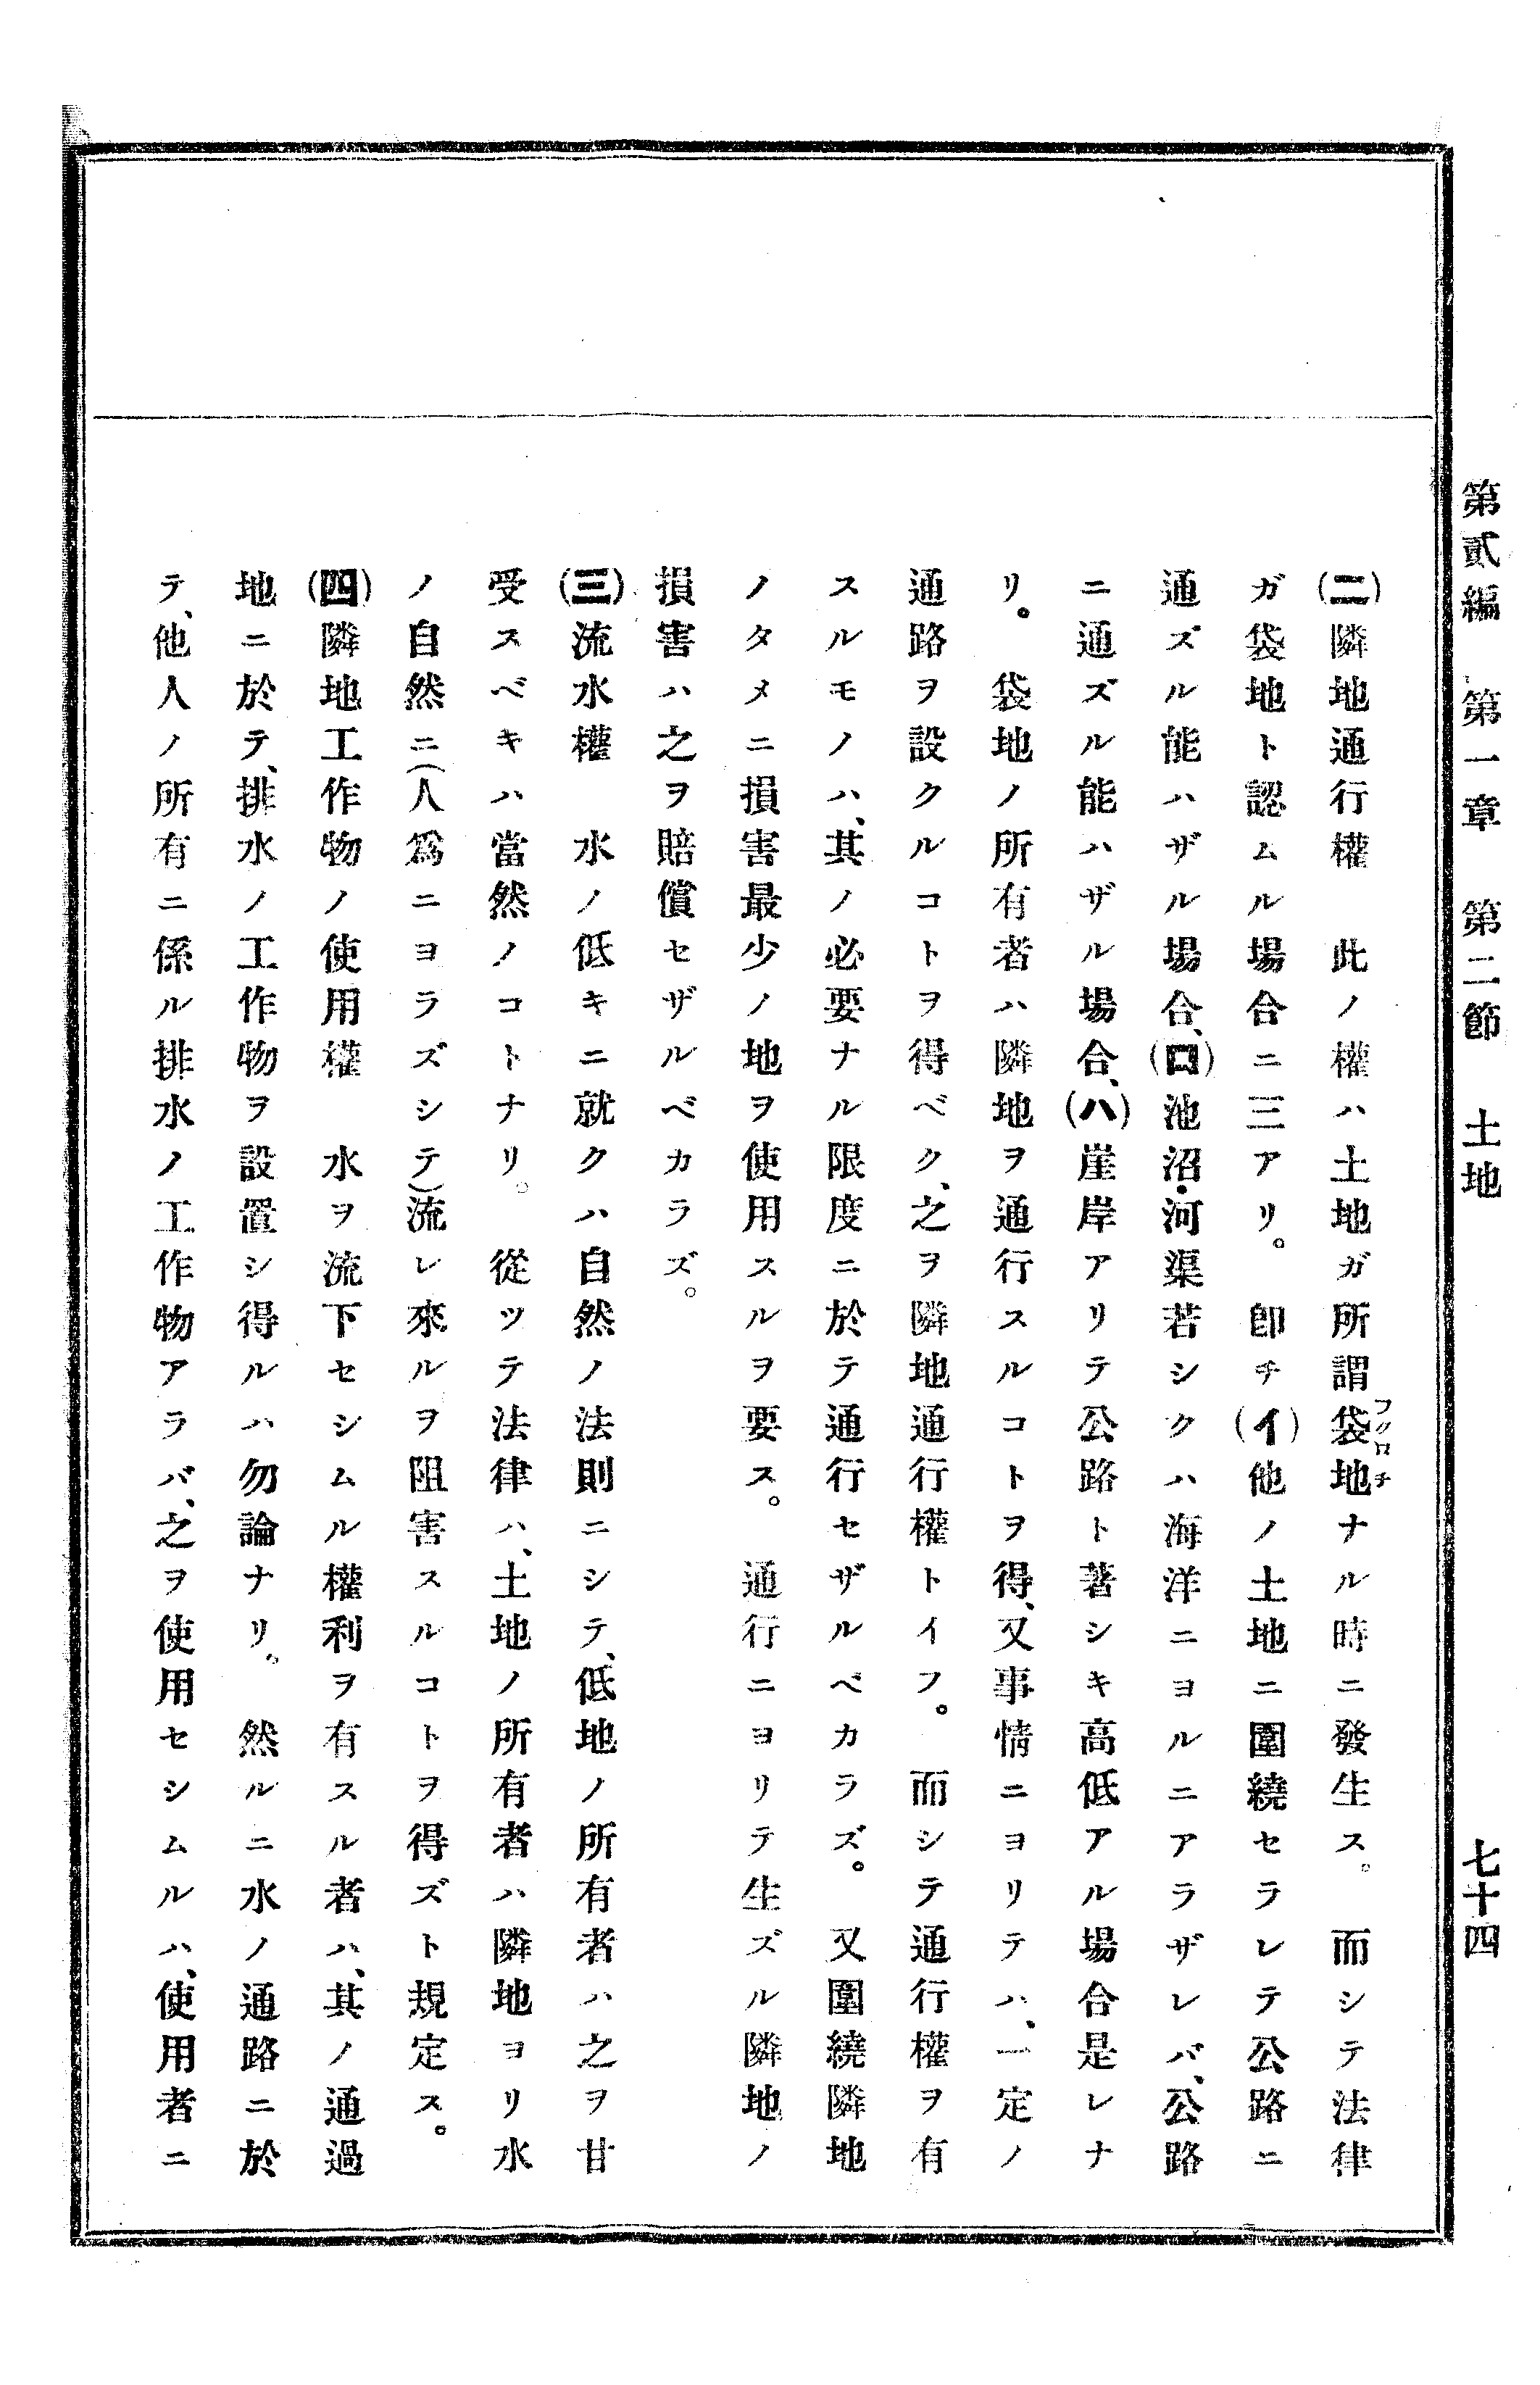 第貳編　第一章　第二節　土地　七十四
(二)隣地通行權　此ノ權ハ土地ガ所謂袋地ナル時ニ發生ス。　而シテ法律
フクロチ
ガ袋地ト認ムル場合ニ三アリ。　卽チ(イ)他ノ土地ニ圍繞セラレテ公路ニ
通ズル能ハザル場合、(ロ)池沼・河渠若シクハ海洋ニヨルニアラザレバ、公路
ニ通ズル能ハザル場合、(ハ)崖岸アリテ公路ト著シキ高低アル場合是レナ
リ。　袋地ノ所有者ハ隣地ヲ通行スルコトヲ得、又事情ニヨリテハ、一定ノ
通路ヲ設クルコトヲ得ベク、之ヲ隣地通行權トイフ。　而シテ通行權ヲ有
スルモノハ、其ノ必要ナル限度ニ於テ通行セザルベカラズ。　又圍繞隣地
ノタメニ損害最少ノ地ヲ使用スルヲ要ス。　通行ニヨリテ生ズル隣地ノ
損害ハ之ヲ賠償セザルベカラズ。
(三)流水權　水ノ低キニ就クハ自然ノ法則ニシテ、低地ノ所有者ハ之ヲ甘
受スベキハ當然ノコトナリ。　從ツテ法律ハ、土地ノ所有者ハ隣地ヨリ水
ノ自然ニ(人爲ニヨラズシテ)流レ來ルヲ阻害スルコトヲ得ズト規定ス。
(四)隣地工作物ノ使用權　水ヲ流下セシムル權利ヲ有スル者ハ、其ノ通過
地ニ於テ、排水ノ工作物ヲ設置シ得ルハ勿論ナリ。　然ルニ水ノ通路ニ於
テ、他人ノ所有ニ係ル排水ノ工作物アラバ、之ヲ使用セシムルハ、使用者ニ